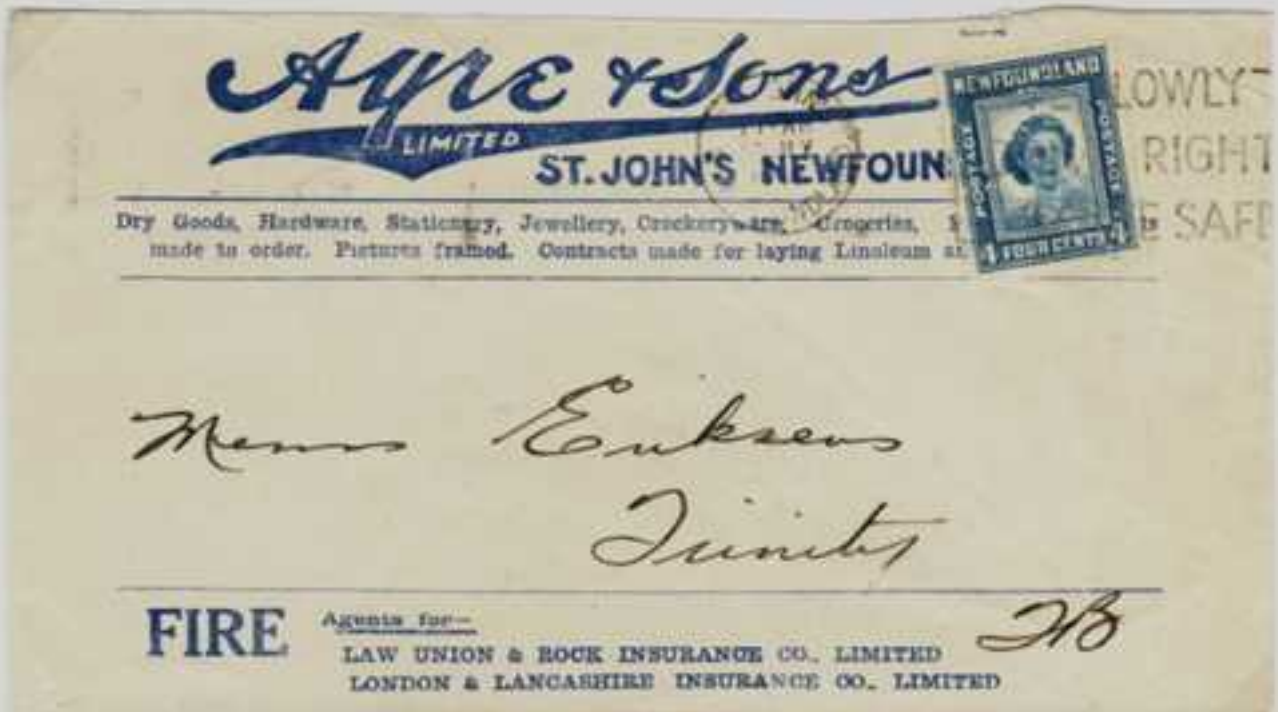 Ayre & Sons
LIMITED
ST. JOHN'S NEWFOUN
NEWFOUNDLAND
POSTAGE POSTAGE
4 FOUR CENTS 4
LOWLY
RIGHT
E SAFE
Dry Goods, Hardware, Stationery, Jewellery, Crockeryware, Groceries,
made to order. Pictures framed. Contracts made for laying Linoleum
Messrs Eriksens
Trinity
TB
FIRE
Agents for—
LAW UNION & ROCK INSURANCE CO., LIMITED
LONDON & LANCASHIRE INSURANCE CO., LIMITED